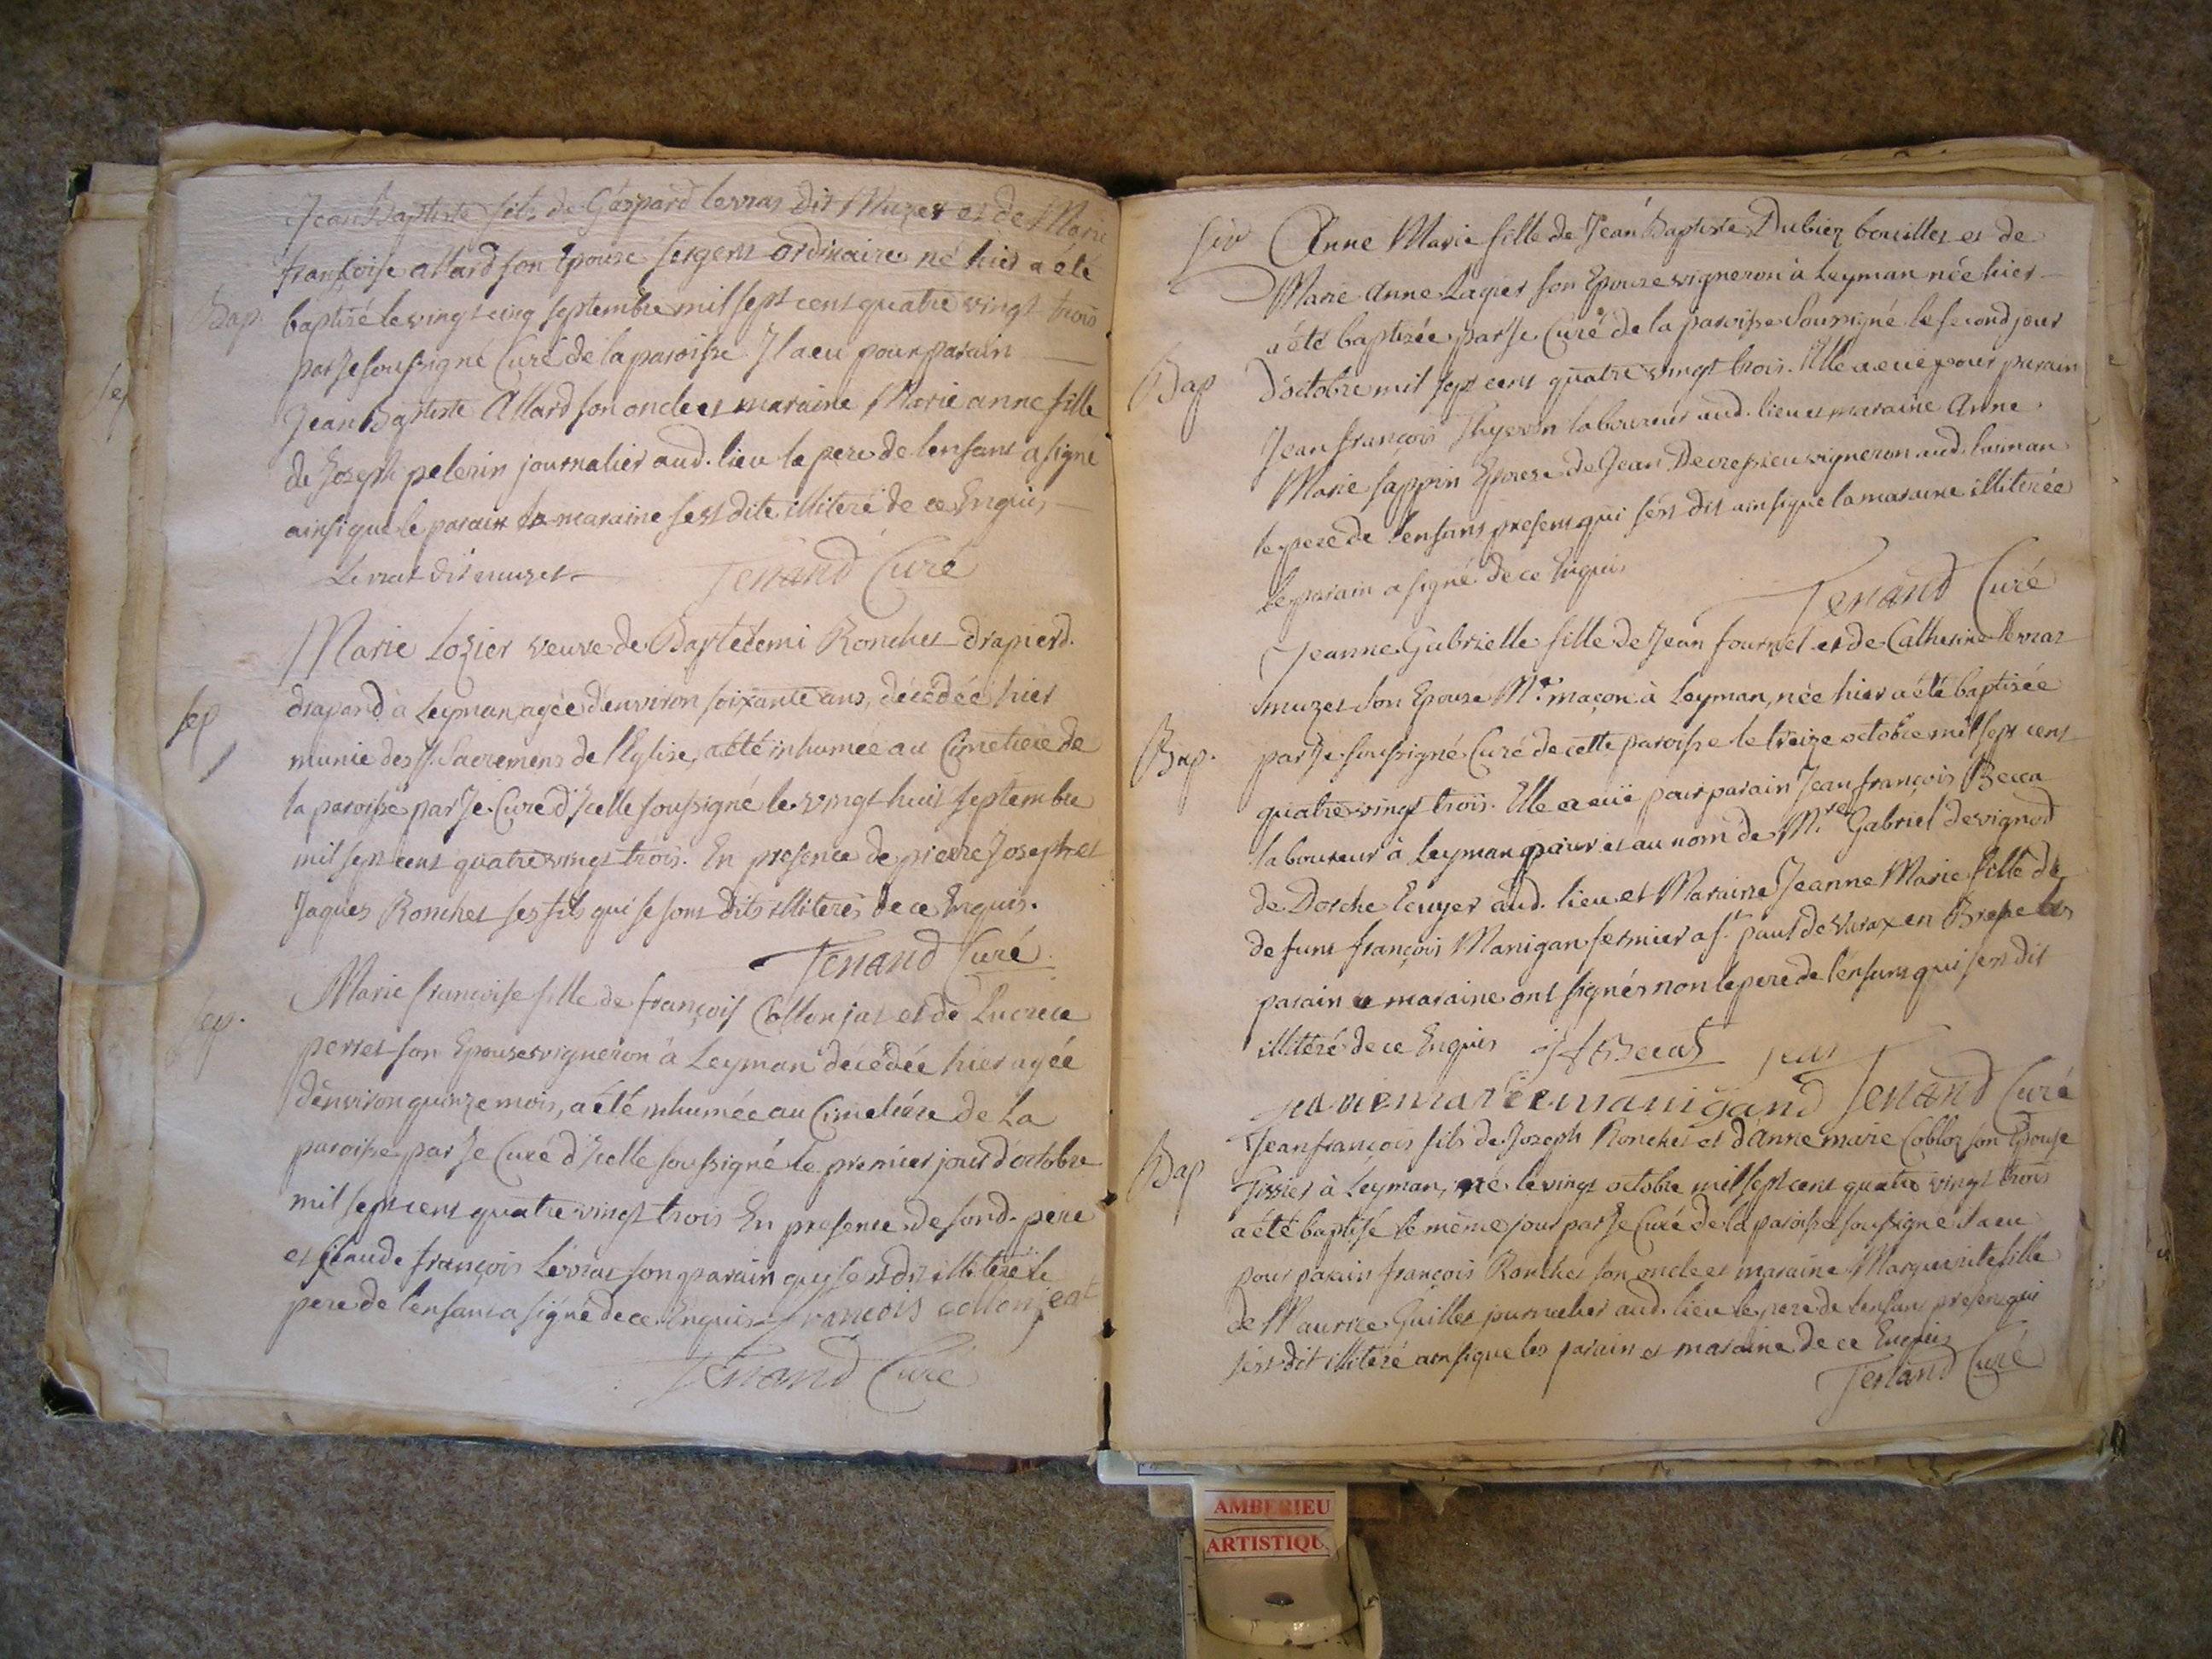 Jean Baptiste fils de Gaspard levrat dit Muzet et de Marie
françoise allard son Epouse sergent ordinaire né hier a été
Bap. baptisé le vingt cinq septembre mil sept cent quatre vingt trois
par Je soussigné Curé de la paroisse Il a eu pour parain
Jean Baptiste Allard son oncle et maraine Marie anne fille
de Joseph pelerin journalier aud. lieu le pere de lenfant a signé
ainsi que le parain la maraine sest dite illiteré de ce Enquis
Levrat dit muzet Tenand Curé
Marie Lozier veuve de Bartelemi Ronchet drapier d.
Sep drapand à Leyman, agée d'environ soixante ans, décédée hier
munie des SS. Sacremens de l'Eglise, a été inhumée au Cimetiere de
la paroisse par Je Curé d'Icelle soussigné le vingt huit septembre
mil sept cent quatre vingt trois. En presence de pierre Joseph et
Jaques Ronchet ses fils qui se sont dits illiterés de ce Enquis.
Tenand Curé
Sep. Marie françoise fille de françois Collonjat et de Lucrece
perret son Epouse vigneron à Leyman décédée hier agée
d'environ quinze mois, a été inhumée au Cimetiére de La
paroisse par Je Curé d'Icelle soussigné le premier jour d'octobre
mil sept cent quatre vingt trois En presence de sond. pere
et Claude françois Levrat son parain qui sest dit illiteré le
pere de lenfant a signé de ce Enquis françois collonjeat
Tenand Curé
Anne Marie fille de Jean Baptiste Dubiez bouillet et de
Marie Anne Lagier son Epouse vigneron à Leyman née hier
a été baptisée par Je Curé de la paroisse soussigné le second jour
Bap d'octobre mil sept cent quatre vingt trois. Elle a eue pour parain
Jean françois Thyevon laboureur aud. lieu et maraine Anne
Marie sappin Epouse de Jean Decressieu vigneron aud. Laiman
le pere de l'enfant present qui s'est dit ainsi que la maraine illiterée
le parain a signé de ce Enquis
Tenand Curé
Jeanne Gabrielle fille de Jean fournel et de Catherine levrat
muzet son Epouse Mr. maçon à Leyman, née hier a été baptisée
Bap. par Je soussigné Curé de cette paroisse le treize octobre mil sept cent
quatre vingt trois. Elle a euë pour parain Jean françois Becca
laboureur à Leyman pour et au nom de Mre Gabriel devignod
de Dorche Ecuyer aud. lieu et Maraine Jeanne Marie fille de
defunt françois Manigan fermier a St. paul de Varax en Bresse les
parain et maraine ont signés non le pere de l'enfant qui sest dit
illiteré de ce Enquis jf Becat
Tenand Curé
Jean françois fils de Joseph Ronchet et d'Anne marie Cobloz son Epouse
Bap Tissier à Leyman, né le vingt octobre mil sept cent quatre vingt trois
a été baptisé le même jour par Je Curé de la paroisse soussigné Il a eu
pour parain françois Ronchet son oncle et maraine Marguerite fille
de Maurice Guillet journalier aud. lieu le pere de lenfant present qui
s'est dit illiteré ainsi que les parain et maraine de ce Enquis
Tenand Curé
AMBERIEU
ARTISTIQU